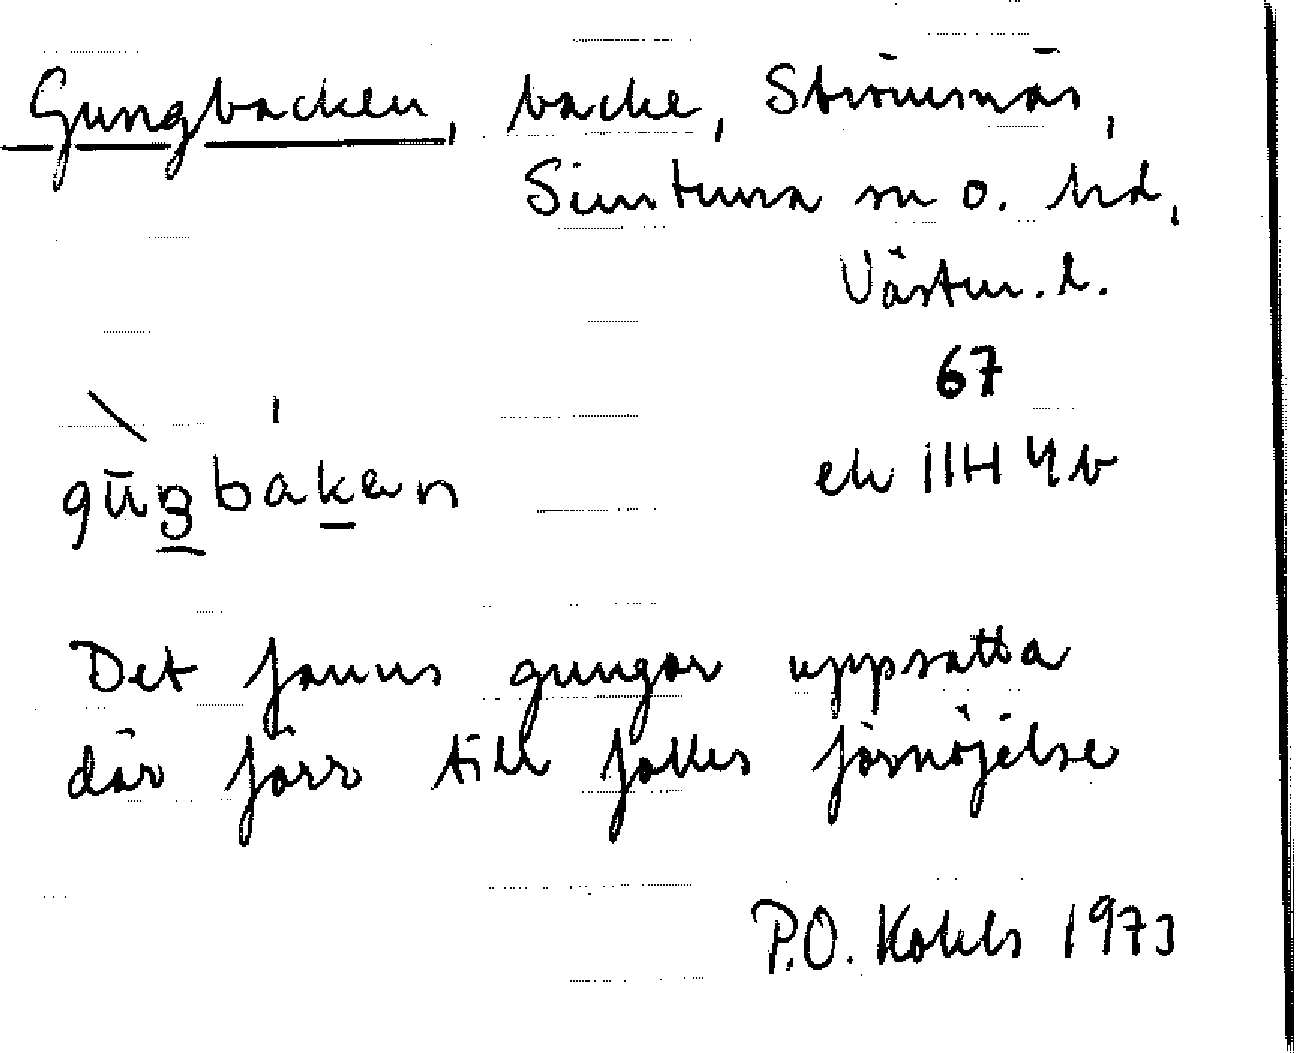 Gungbacken, backe, Strömsnäs,
Simtuna sn o. hd,
Västm. l.
67
ek 11H 4b
gūŋbakan
Det fanns gungor uppsatta
där förr till folkes förnöjelse
P.O. Kohls 1973